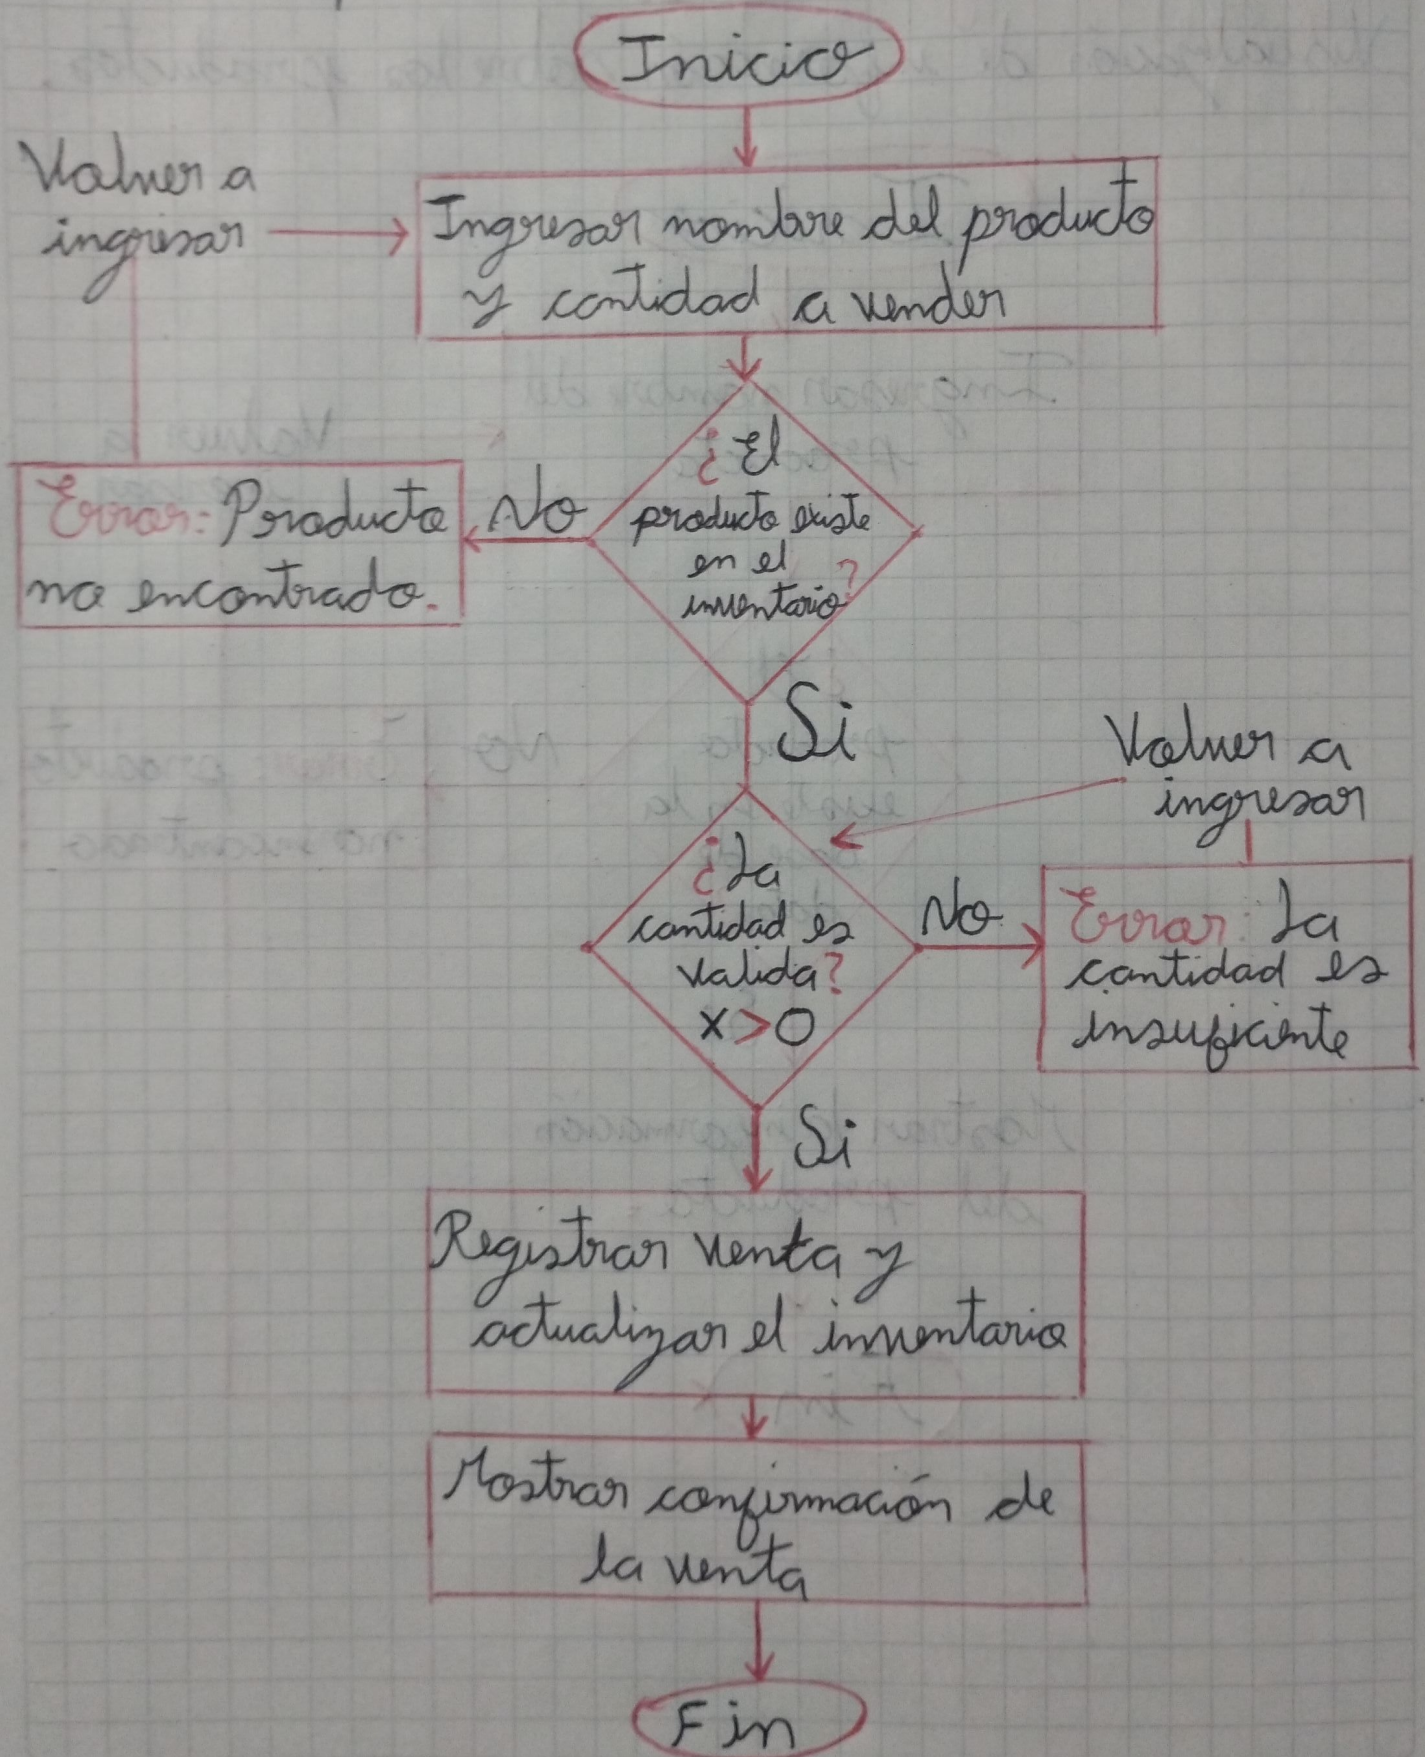 Inicio
Volver a
ingresar
Ingresar nombre del producto
y cantidad a vender
¿El
producto existe
en el
inventario?
No
Error: Producto
no encontrado.
Si
Volver a
ingresar
¿La
cantidad es
valida?
x>0
No
Error: La
cantidad es
insuficiente
Si
Registrar venta y
actualizar el inventario
Mostrar confirmación de
la venta
Fin